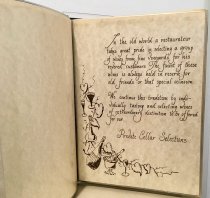 In the old world a restaurateur
takes great pride in selecting a group
of wines from the vineyards for his
revered customers. The finest of these
wines is always held in reserve for
old friends or that special occasion.
We continue this tradition by indi-
vidually tasting and selecting wines
of extraordinary distinction to be offered
for you.
Private Cellar Selections